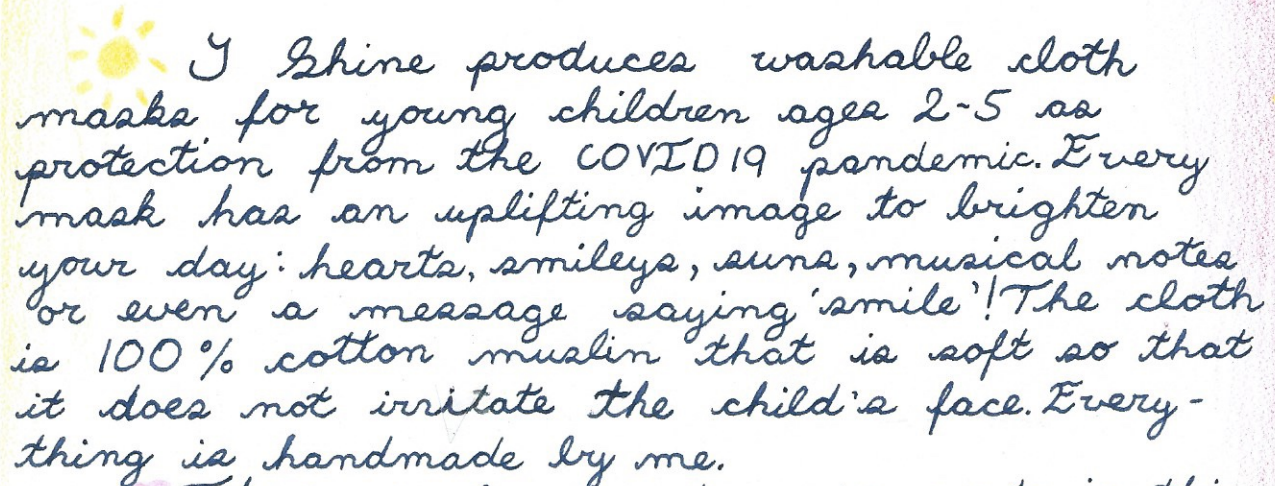 I Shine produces washable cloth
masks for young children ages 2-5 as
protection from the COVID19 pandemic. Every
mask has an uplifting image to brighten
your day: hearts, smileys, suns, musical notes
or even a message saying 'smile'! The cloth
is 100% cotton muslin that is soft so that
it does not irritate the child's face. Every-
thing is handmade by me.